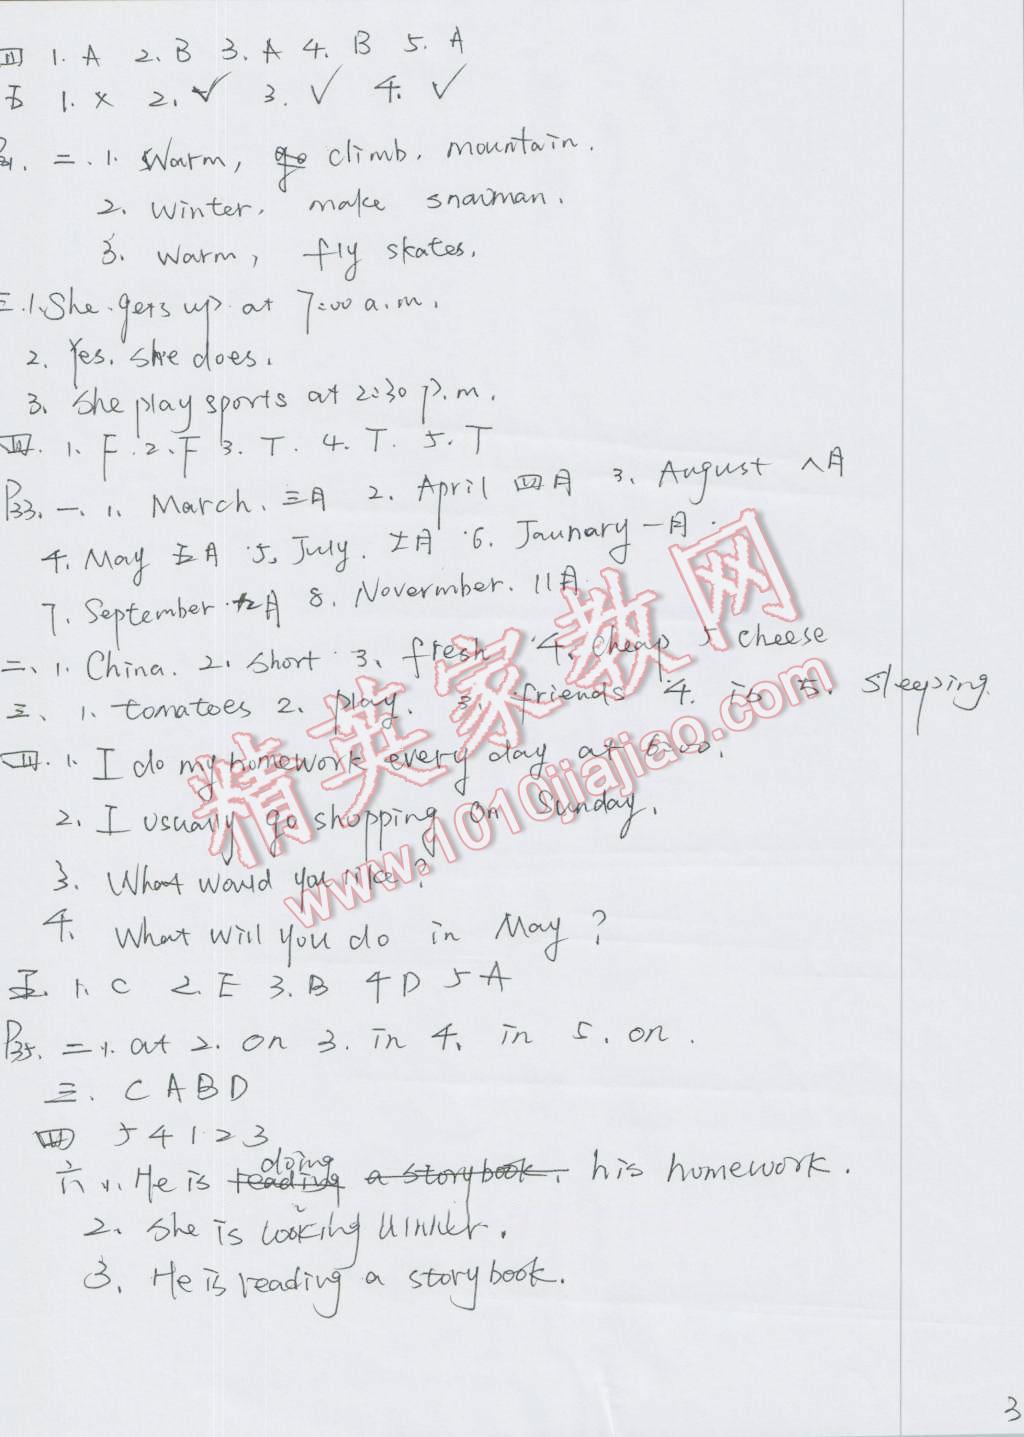 四 1. A 2. B 3. A 4. B 5. A
五 1. × 2. ✓ 3. ✓ 4. ✓
二. 1. Warm, go climb. mountain.
2. winter. make snowman.
3. warm, fly skates.
三. 1. She gets up at 7:00 a.m.
2. Yes. she does.
3. She play sports at 2:30 p.m.
四. 1. F. 2. F 3. T. 4. T. 5. T
P33. 一. 1. March. 三月 2. April 四月 3. August 八月
4. May 五月 5. July. 七月 6. Jaunary 一月.
7. September 九月 8. Novermber. 11月
二、1. China. 2. short 3、fresh 4. cheap 5 cheese
三、1. tomatoes 2. play. 3. friends 4. is 5. sleeping.
四. 1. I do my homework every day at 6:00.
2. I usually go shopping on Sunday.
3. What would you like?
4. What will you do in May?
五. 1. C 2. E 3. B 4 D 5 A
P35. 二 1. at 2. on 3. in 4. in 5. on.
三. C A B D
四 5 4 1 2 3
doing
六 1. He is reading a storybook. his homework.
2. She is cooking dinner.
3. He is reading a storybook.
3
精英家教网
www.1010jiajiao.com